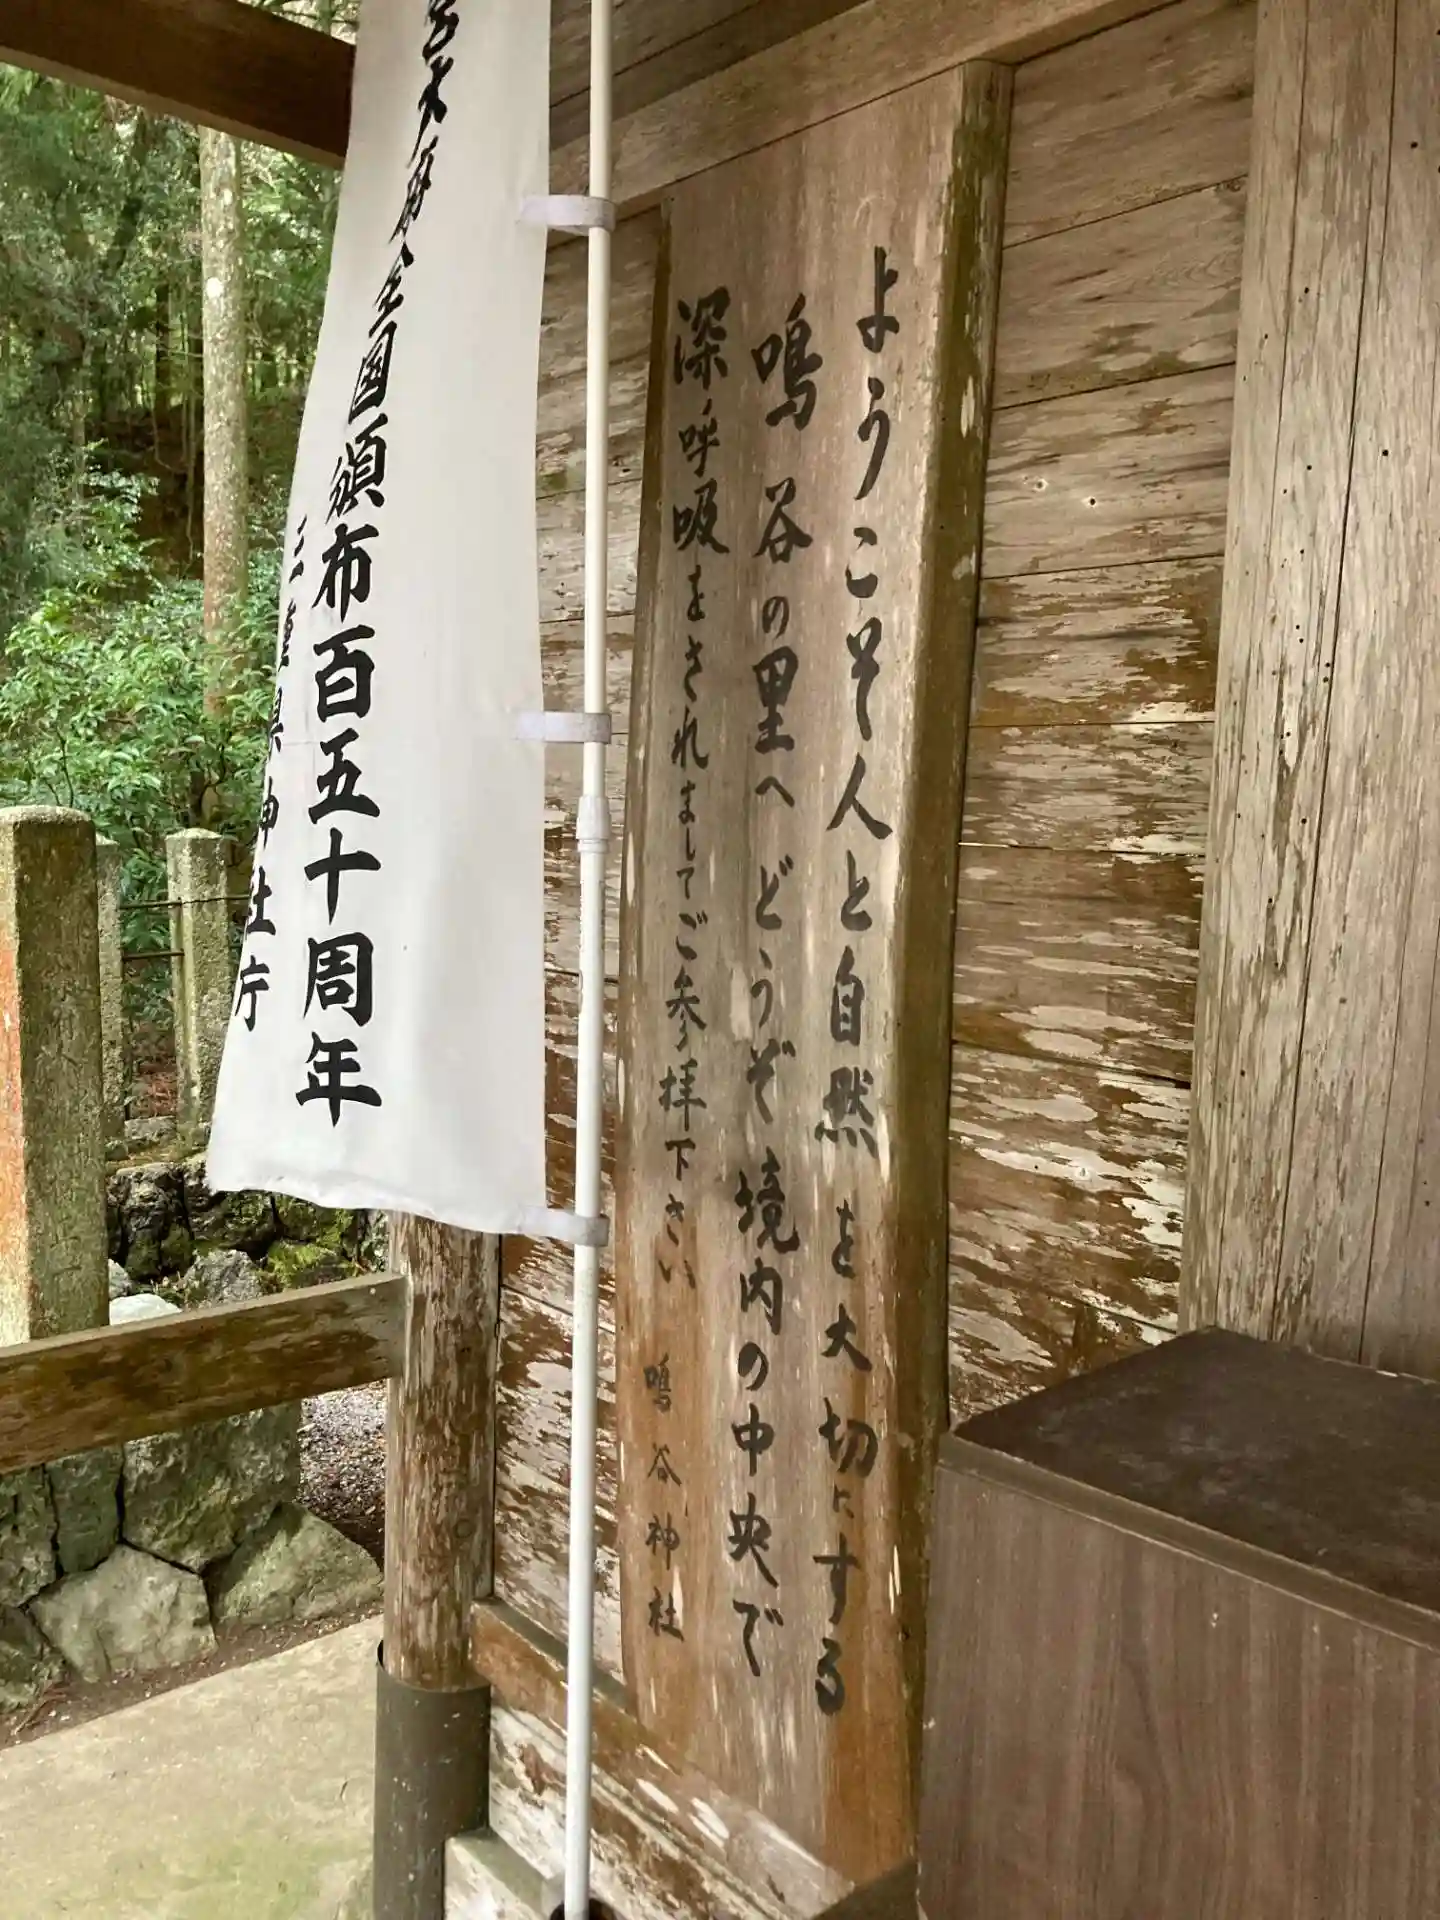 ようこそ人と自然を大切にする
鳴谷の里へどうぞ境内の中央で
深呼吸をされましてご参拝下さい
鳴谷神社
宮大麻全国頒布百五十周年
三重県神社庁